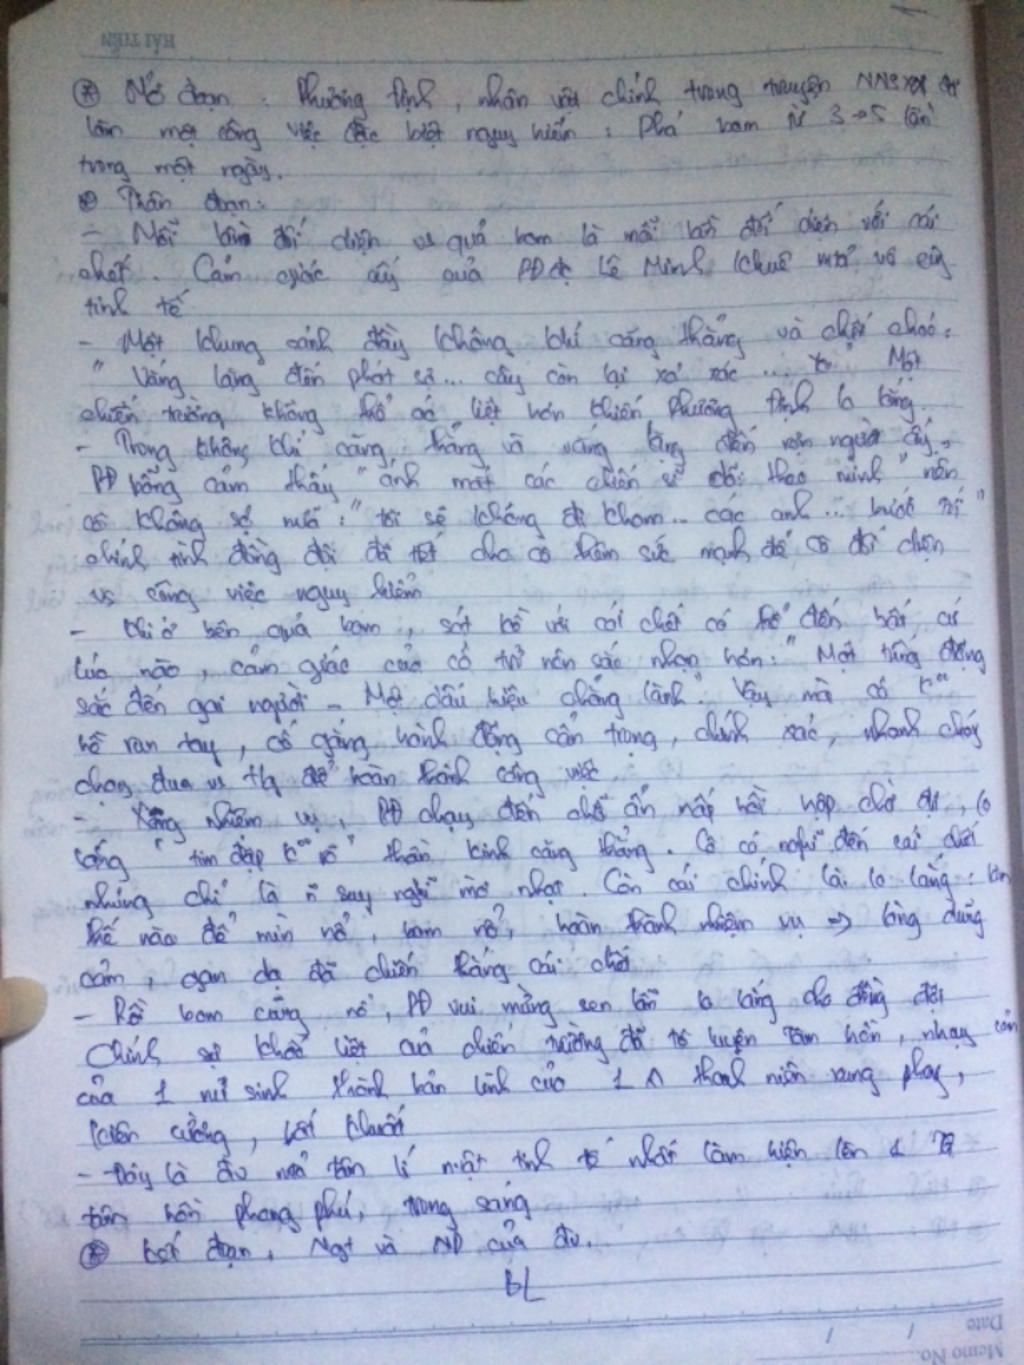 HẢI TIẾN
⊛ Mở đoạn : Phương Định, nhân vật chính trong truyện NNSXX
làm một công việc đặc biệt nguy hiểm : Phá bom từ 3→5 lần
trong một ngày.
⊛ Thân đoạn:
- Mỗi lần đối diện vs quả bom là mỗi lần đối diện với cái
chết. Cảm giác ấy của PĐ đc Lê Minh Khuê mtả vô cùng
tinh tế
- Một khung cảnh đầy không khí căng thẳng và chết chóc:
" Vắng lặng đến phát sợ... cây còn lại xơ xác ... to" Một
chiến trường không thể ác liệt hơn khiến Phương Định lo lắng
- Trong không khí căng thẳng và vắng lặng đến rợn người ấy,
PĐ bỗng cảm thấy "ánh mắt các chiến sĩ dõi theo mình" nên
cô không sợ nữa : "tôi sẽ không đi khom... các anh ... bước tới"
chính tình đồng đội đã cho cô thêm sức mạnh để cô đối diện
vs công việc nguy hiểm
- Khi ở bên quả bom, sát kề với cái chết có thể đến bất cứ
lúc nào, cảm giác của cô trở nên sắc nhọn hơn : " Một tiếng động
sắc đến gai người - Một dấu hiệu chẳng lành". Vậy mà cô k
hề run tay, cố gắng hành động cẩn trọng, chính xác, nhanh chóng
chạy đua vs tg để hoàn thành công việc
- Xong nhiệm vụ, PĐ chạy đến chỗ ẩn nấp hồi hộp chờ đợi, lo
lắng " tim đập k rõ" thần kinh căng thẳng. Cô có nghĩ đến cái chết
nhưng chỉ là suy nghĩ mờ nhạt. Còn cái chính là lo lắng : làm
thế nào để mìn nổ, bom nổ, hoàn thành nhiệm vụ → lòng dũng
cảm, gan dạ đã chiến thắng cái chết
- Rồi bom cũng nổ, PĐ vui mừng xen lẫn lo lắng cho đồng đội
Chính sự khốc liệt của chiến trường đã tôi luyện tâm hồn, nhạy cảm
của 1 nữ sinh thành bản lĩnh của 1 thanh niên xung phong,
kiên cường, bất khuất
- Đây là đv mtả tâm lí n.vật tinh tế nhất làm hiện lên 1 TG
tâm hồn phong phú, trong sáng
⊛ Kết đoạn, Ngt và ND của đv.
Date
Memo No.